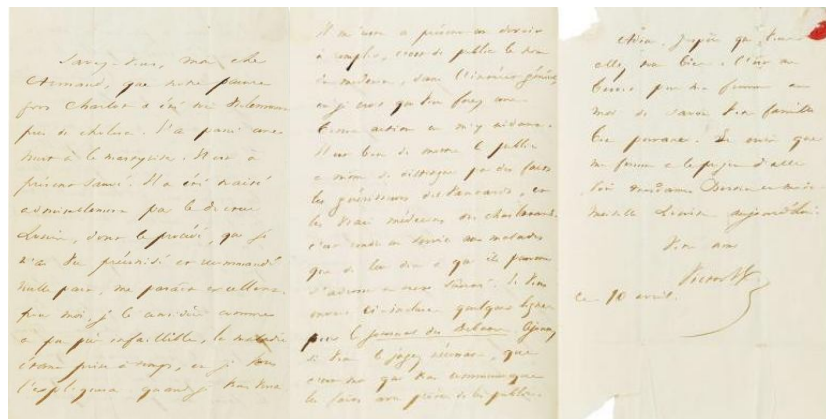 Savez-vous, mon cher
Armand, que notre pauvre
gros Charlot a été pris violemment
pris de choléra. Il a passé une
nuit à la mort. Il est à
présent sauvé. Il a été traité
admirablement par le docteur
Louis, dont le procédé, que je
n'ai vu préconisé et recommandé
nulle part, me paraît excellent.
pour moi, je le considère comme
à peu près infaillible, la maladie
étant prise à temps, et je vous
l'expliquerai quand je vous verrai
Il me reste à présent un devoir
à remplir, c'est de publier le nom
du médecin, dans l'intérêt général,
et je crois que vous ferez une
bonne action en m'y aidant.
Il est bon de mettre le public
à même de distinguer par des faits
les guérisseurs des
les vrais médecins des charlatans.
c'est rendre un service aux malades
que de leur dire à qui ils peuvent
s'adresser
envoie ci-incluses quelques lignes
pour le journal des débats. Ajoutez,
si vous le jugez nécessaire, que
c'est moi qui vous communique
les faits avec prière de les publier.
Adieu. J'espère que vous
allez tous bien. C'est un
bonheur pour ma femme et
moi de savoir votre famille
bien portante. Je crois que
ma femme a le projet d'aller
voir madame Bertin et
Louise aujourd'hui.
Votre ami
Victor H.
Ce 10 avril.